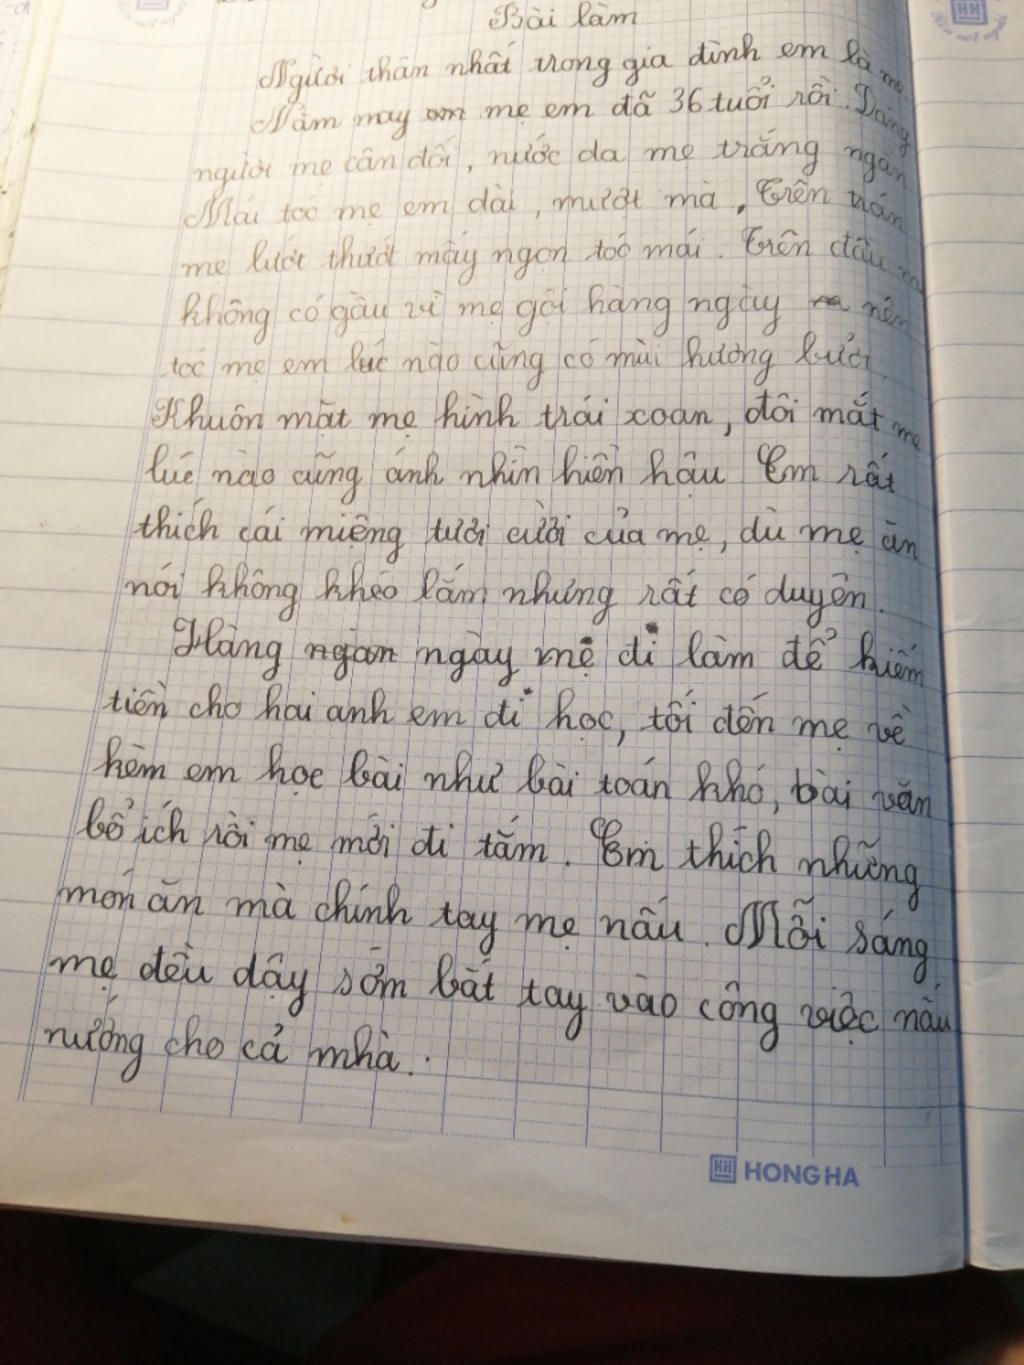 Bài làm
Người thân nhất trong gia đình em là mẹ.
Năm nay mẹ em đã 36 tuổi rồi. Dáng
người mẹ cân đối, nước da mẹ trắng ngần
Mái tóc mẹ em dài, mượt mà, Trên trán
mẹ lướt thướt mấy ngọn tóc mái. Trên đầu
không có gàu vì mẹ gội hàng ngày nên
tóc mẹ em lúc nào cũng có mùi hương bưởi.
Khuôn mặt mẹ hình trái xoan, đôi mắt mẹ
lúc nào cũng ánh nhìn hiền hậu Em rất
thích cái miệng tươi cười của mẹ, dù mẹ ăn
nói không khéo lắm nhưng rất có duyên.
Hàng ngày mẹ đi làm để kiếm
tiền cho hai anh em đi học, tối đến mẹ về
kèm em học bài như bài toán khó, bài văn
bổ ích rồi mẹ mới đi tắm. Em thích những
món ăn mà chính tay mẹ nấu. Mỗi sáng
mẹ đều dậy sớm bắt tay vào công việc nấu
nướng cho cả nhà.
HONG HA